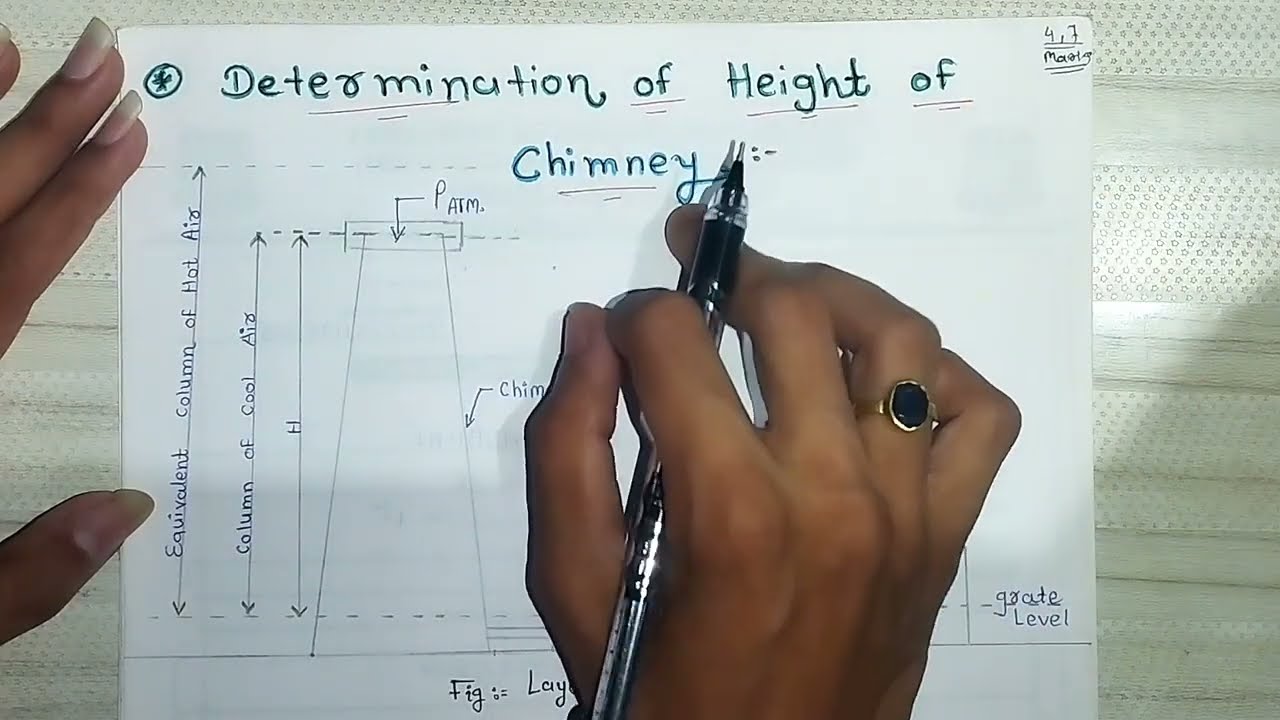 4,7
Marks
* Determination of Height of
Chimney :-
PATM.
Equivalent Column of Hot Air
Column of Cool Air
H
grate
Level
Fig :-